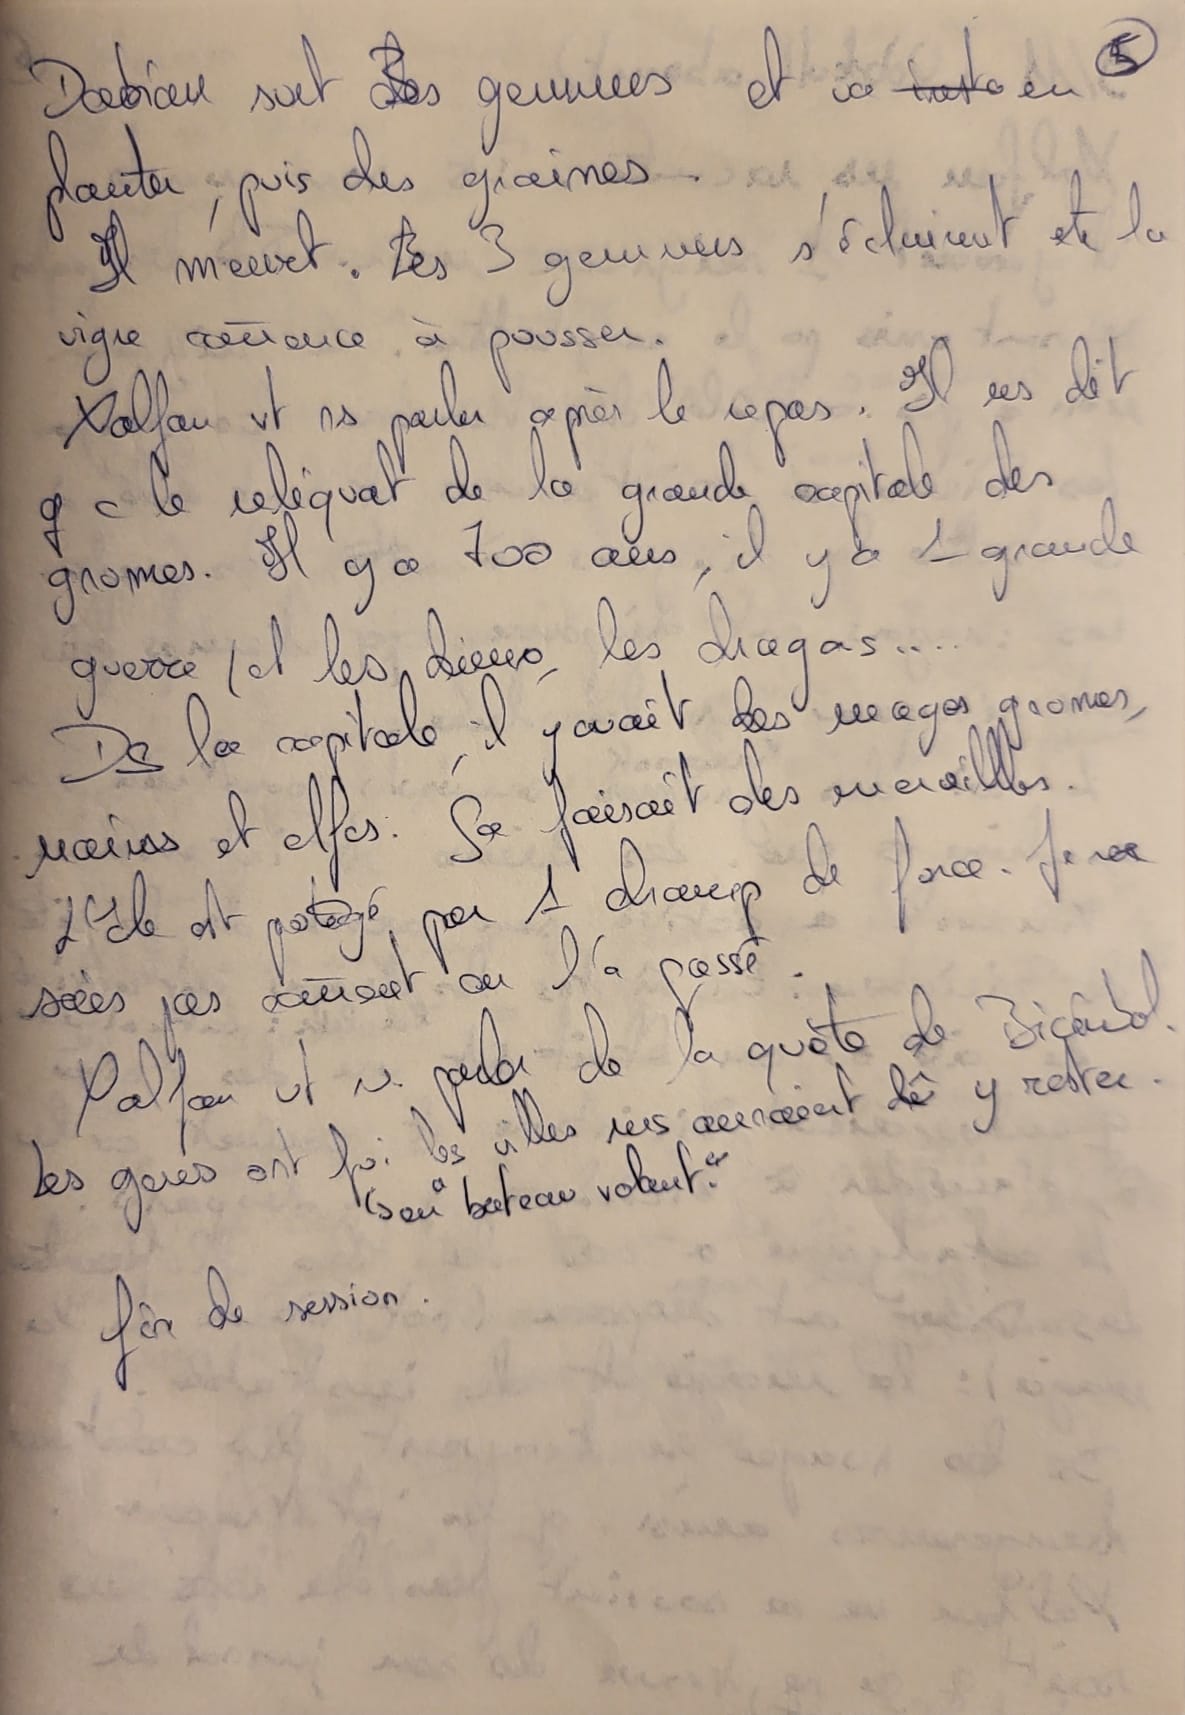 ⑤
Dabian sort des gemmes et va en
planter, puis des graines.
Il meurt. Les 3 gemmes s'éclairent et la
vigne com̄ence à pousser.
Xalfan vt ns parler après le repas. Il ns dit
q c le reliquat de la grande capitale des
gnomes. Il y a 700 ans, il y a 1 grande
guerre / et les dieux, les dragos....
Ds la capitale, il y avait des mages gnomes,
nains et elfes. Ça faisait des merveilles.
L'île est protégé par 1 champ de force. Je ne
sais pas com̄ent on l'a passé.
Xalfan vt ns parler de la quête de
Les gens ont fui les villes mais auraient dû y rester.
"son bateau volant."
fin de session.